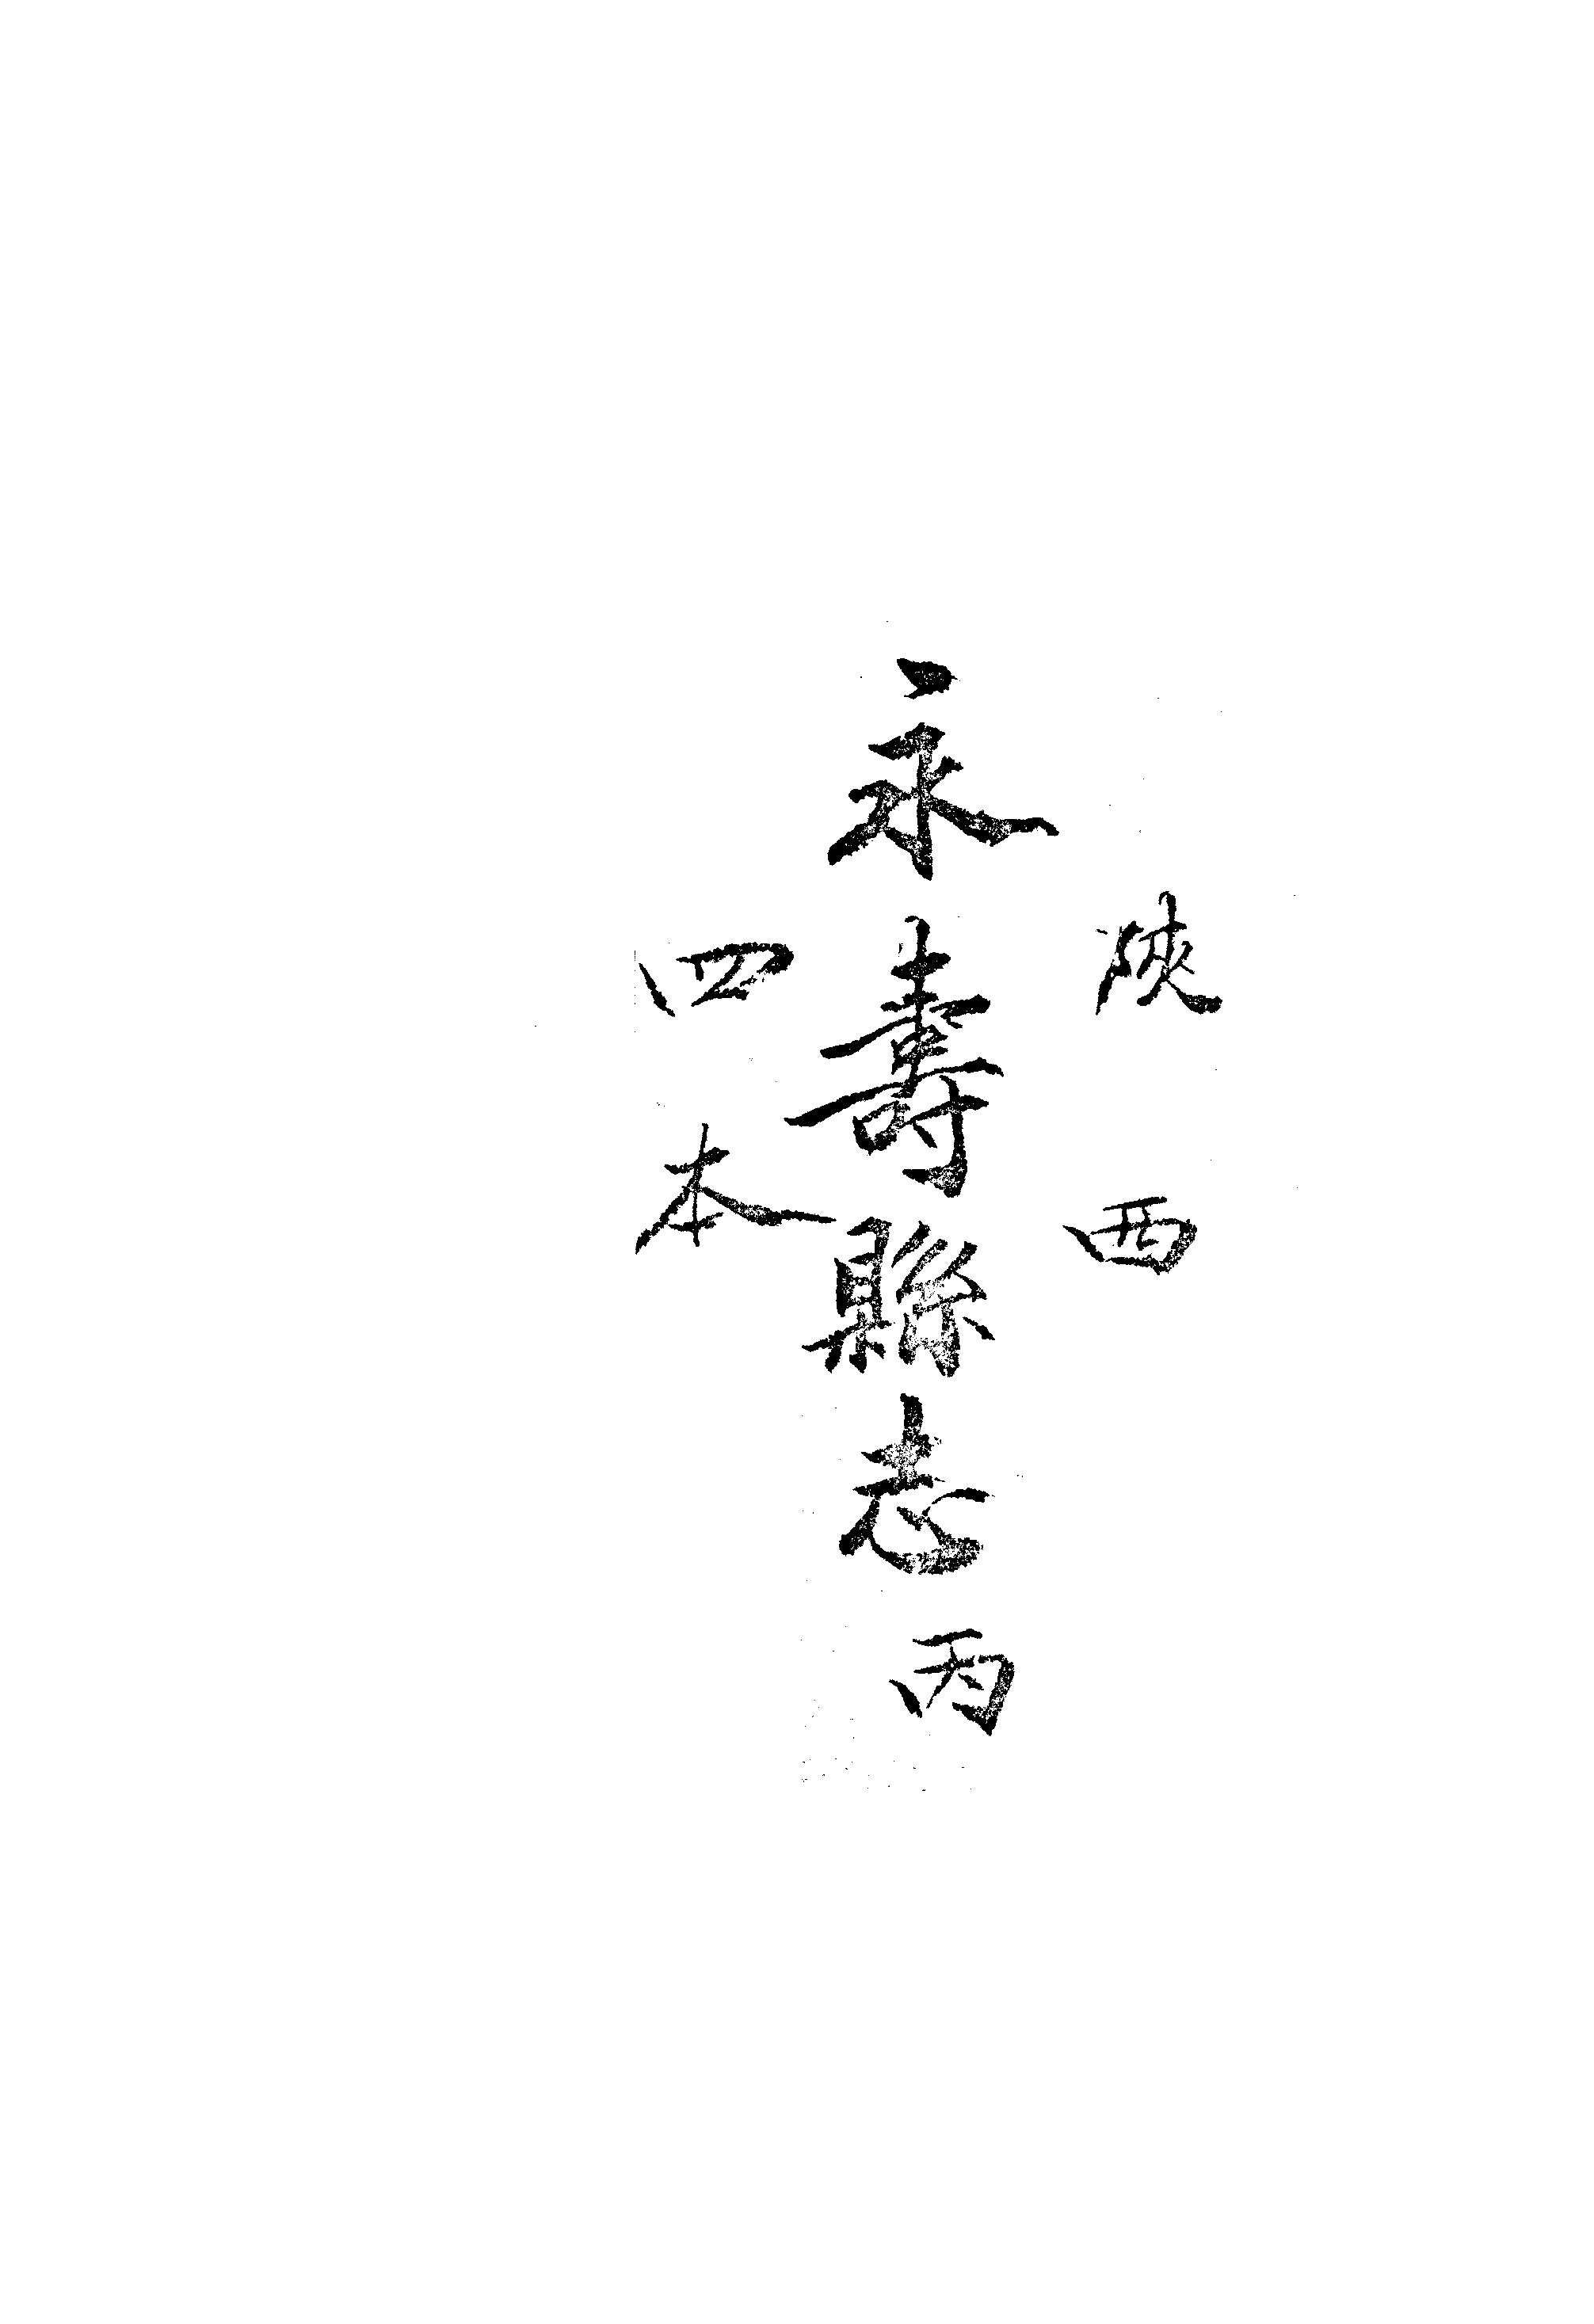 陝西
永壽縣志 丙
四本